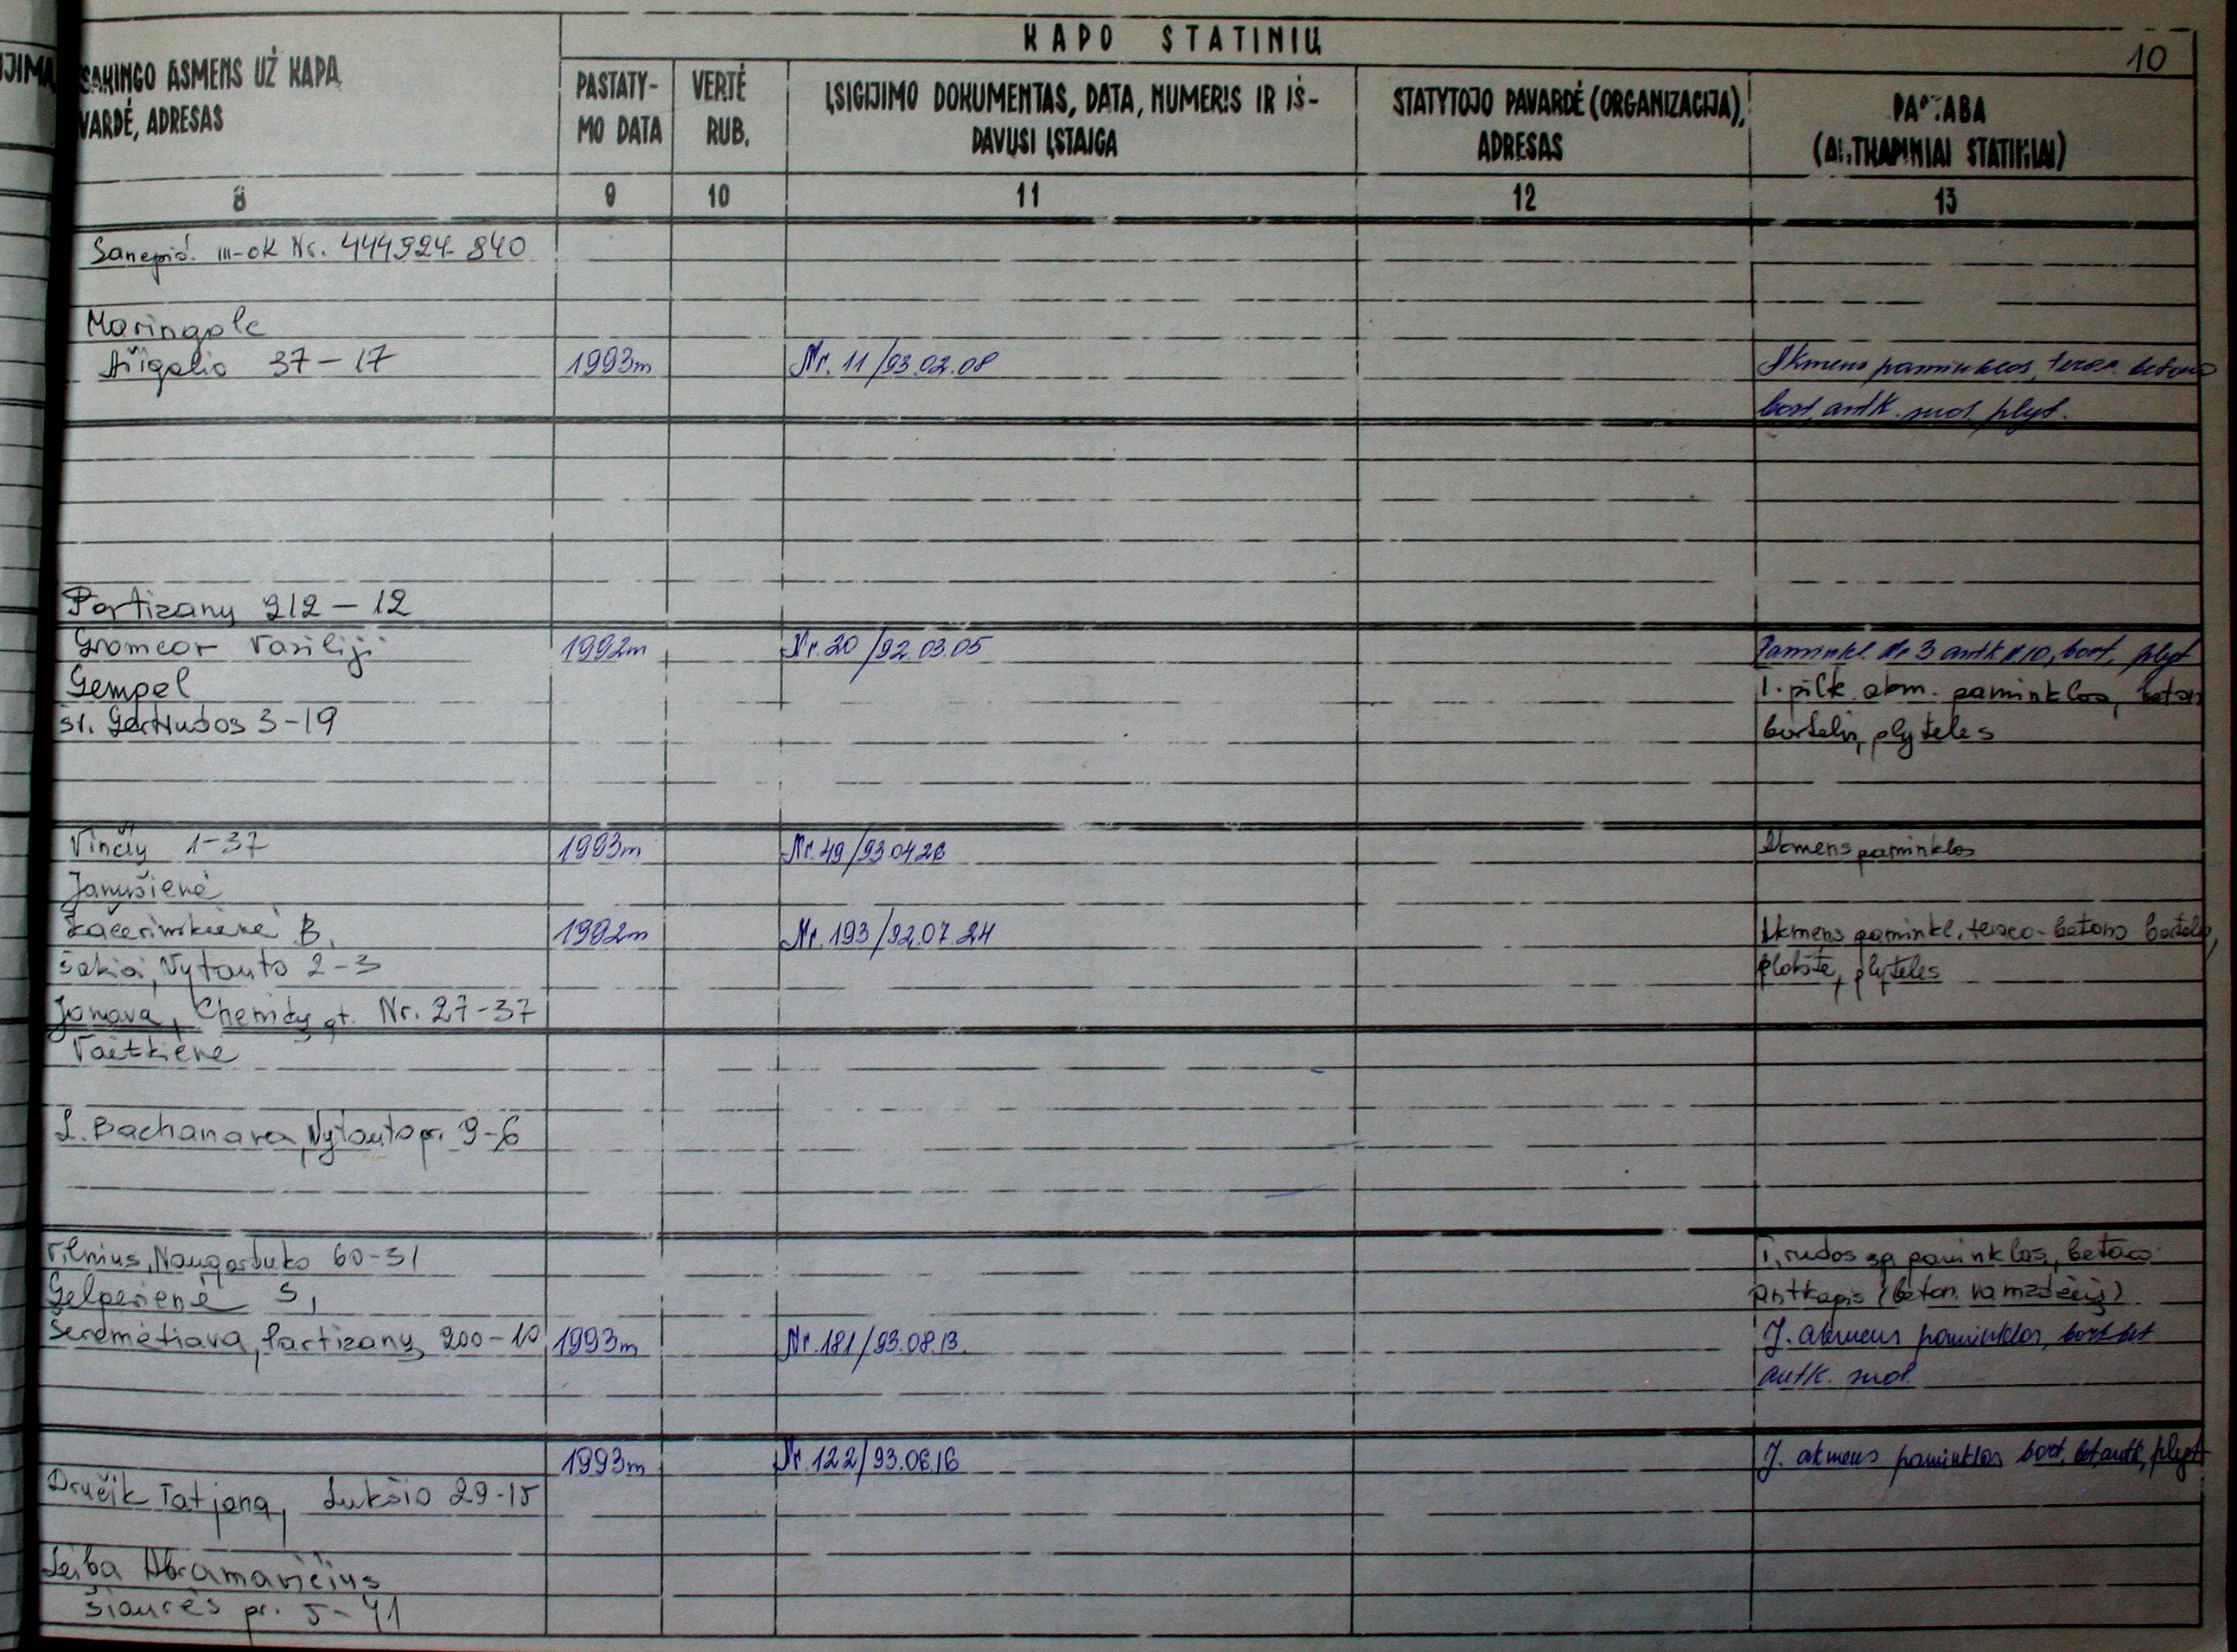 KAPO STATINIŲ
10
SAKINGO ASMENS UŽ KAPĄ
VARDĖ, ADRESAS
PASTATY-
MO DATA
VERTĖ
RUB.
ĮSIGIJIMO DOKUMENTAS, DATA, NUMERIS IR IŠ-
DAVUSI ĮSTAIGA
STATYTOJO PAVARDĖ (ORGANIZACIJA),
ADRESAS
PASTABA
(ANTKAPINIAI STATINIAI)
8 9 10 11 12 13
III-ok Nr. 444924-840
Maringole
37-17 1993m Nr. 11/93.02.08 Akmens paminklas, terac. betono
bort, antk. sud. plyt.
Partizanų 212-12
Gromcov Vasilij 1992m Nr. 20/92.03.05 Paminkl. Nr 3 antk N 10, bort, plyt
Gempel I. pilk. akm. paminklas, beton
šv. Gertrudos 3-19 borteliai, plyteles
Vinčų 1-37 1993m Nr. 49/93.04.26 Akmens paminklas
Janušienė
B. 1992m Nr. 193/92.07.24 Akmens paminkl. teraco-betono bortel,
Šakiai, Vytauto 2-3 plokšte, plyteles
Jonava, Chemikų gt. Nr. 27-37
Vaitkienė
L. Bachanova, Vytauto pr. 9-6
Vilnius, Naugarduko 60-31 I, rudos sp. paminklas, betono
Gelperienė S, Antkapis (beton. vamzdžių)
Šeremetjava, Partizanų 200-10 1993m Nr. 181/93.08.13. J. akmens paminklas, bort bet
antk. sud.
1993m Nr. 122/93.06.16 J. akmens paminklas bort, bet antk, plyt
Dručik Tatjana, Lukšio 29-15
Leiba Abramavičius
Šiaurės pr. 5-41